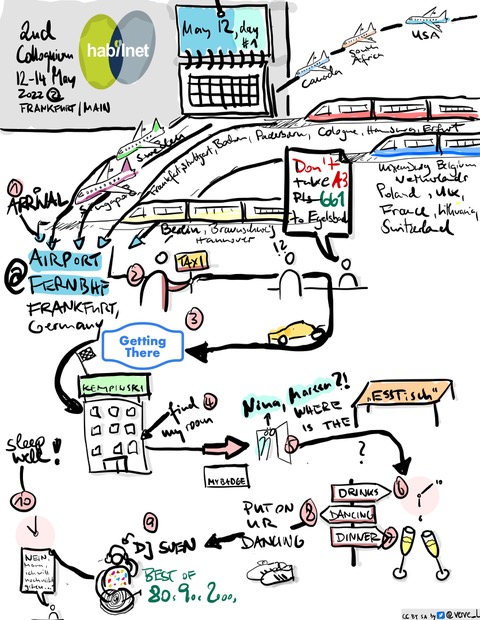 2nd
Colloquium
12-14 May
2022 @
FRANKFURT/MAIN
habilnet
May 12, day
#1
Canada
South
Africa
USA
Sweden
Singapore
Frankfurt, Stuttgart, Bochum, Paderborn, Cologne, Hamburg, Erfurt
Luxemburg Belgium
Netherlands
Poland, UK,
France, Lithuania,
Switzerland
Berlin, Braunschweig
Hannover
Don't
take A3
Pls 661
to Egelsbach
1
ARRIVAL
@ AIRPORT
FERNBHF
FRANKFURT,
Germany
2
TAXI
12
3
Getting
There
KEMPINSKI
find 4
my room
MY BADGE
Nina, Kareen?!
WHERE
IS THE
"ESSTISCH"
5
?
6
DRINKS
DANCING
DINNER
8
PUT ON
UR
DANCING
9
DJ SVEN
BEST OF
80, 90, 2000,
sleep
well!
10
NEIN,
CC BY SA by @